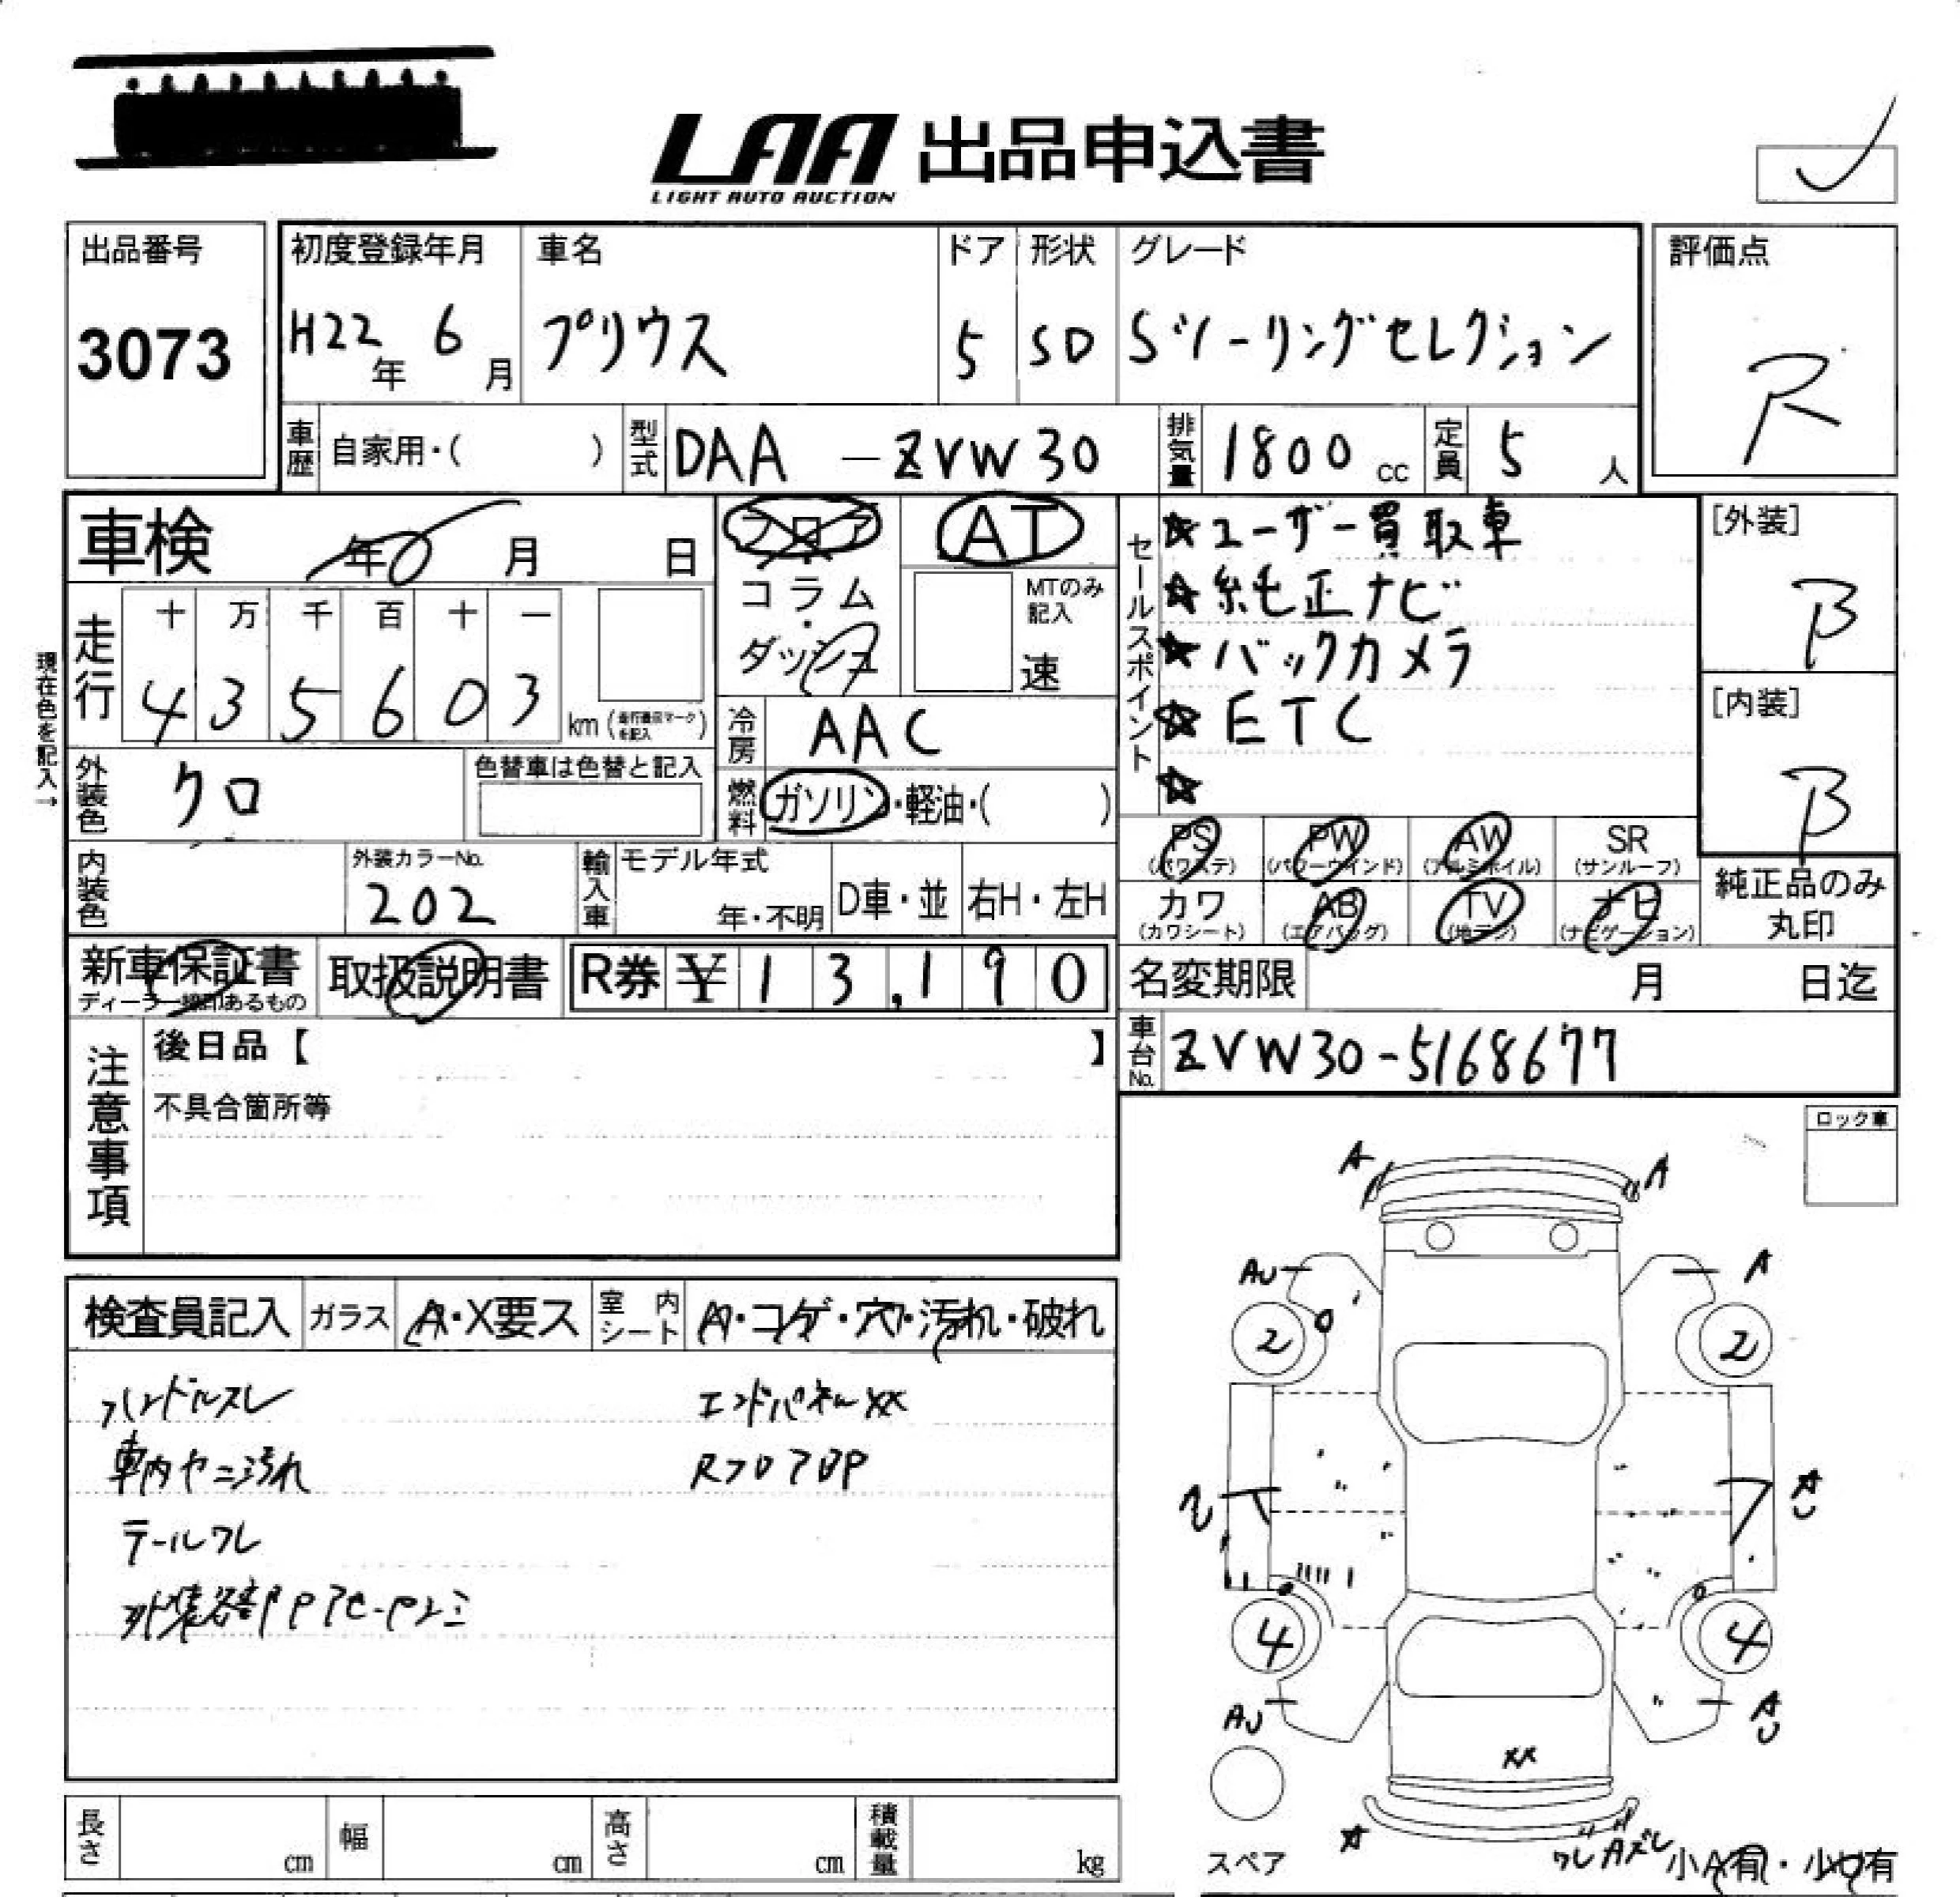 LAA 出品申込書
LIGHT AUTO AUCTION
出品番号
3073
初度登録年月
H22年 6月
車名
プリウス
ドア
5
形状
SD
グレード
Sツーリングセレクション
評価点
R
車歴 自家用・( )
型式 DAA-ZVW30
排気量 1800 cc
定員 5 人
車検 年 月 日
現在色を記入→
走行 十 万 千 百 十 一
4 3 5 6 0 3 km
フロア・コラム・ダッシュ
AT
MTのみ記入
速
冷房 AAC
燃料 ガソリン・軽油・( )
外装色 クロ
色替車は色替と記入
内装色
外装カラーNo.
202
輸入車 モデル年式
年・不明
D車・並
右H・左H
セールスポイント
★ユーザー買取車
★純正ナビ
★バックカメラ
☆ETC
☆
[外装]
B
[内装]
B
PS (パワステ)
PW (パワーウインド)
AW (アルミホイル)
SR (サンルーフ)
カワ (カワシート)
AB (エアバッグ)
TV (地デジ)
ナビ (ナビゲーション)
純正品のみ丸印
新車保証書
取扱説明書
R券 ¥13,190
名変期限 月 日迄
車台No. ZVW30-5168677
注意事項
後日品【 】
不具合箇所等
ロック車
検査員記入
ガラス A・X要ス
室内シート A・コゲ・穴・汚れ・破れ
ハンドルスレ
車内ヤニ汚れ
テールワレ
エンドパネルXX
A
A
AU
A
2
2
AU
4
4
AU
AU
XX
A
ワレ Aズレ
スペア
小A有・小U有
長さ cm
幅 cm
高さ cm
積載量 kg